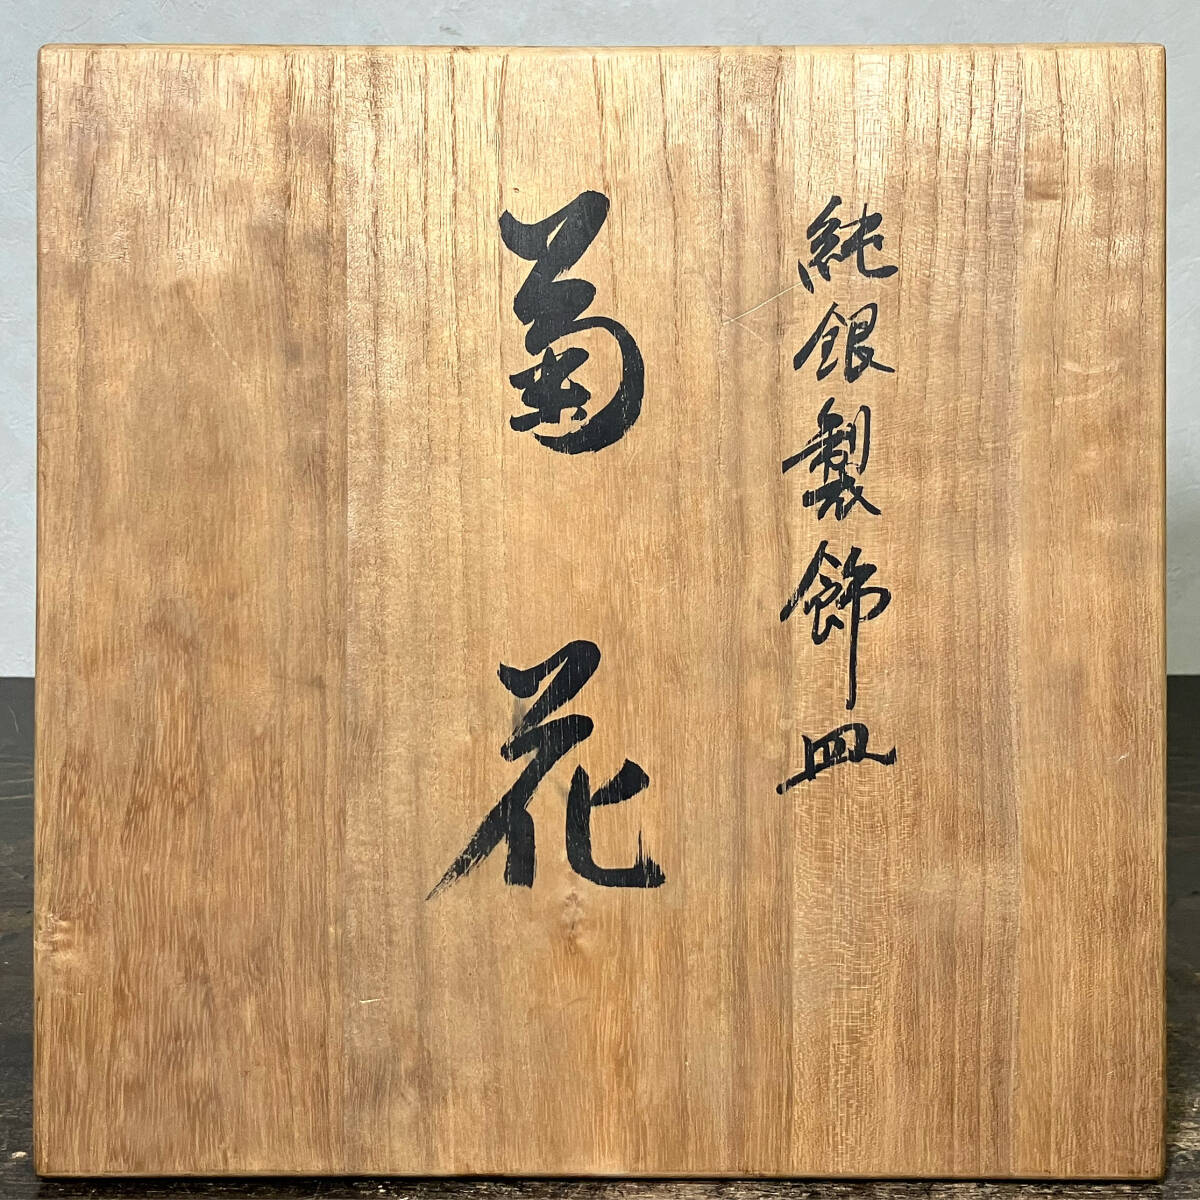 純銀製飾皿
菊花